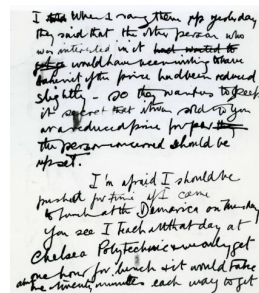 I when I rang them up yesterday
they said that the other person who
was interested in it had wanted to
would have been willing to have
taken it if the price had been reduced
slightly - so they want us to keep
it secret that it was sold to you
at a reduced price for
the person concerned should be
upset.
I'm afraid I should be
pushed for time if I came
to lunch at the on Tuesday
You see I teach all that day at
Chelsea Polytechnic & we only get
one hour for lunch & it would take
me twenty minutes each way to get